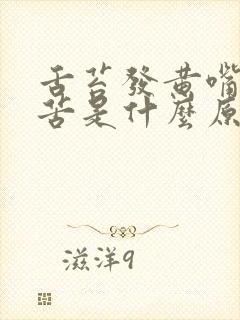 舌苔發黃嘴
苦是什麼原
滋洋9